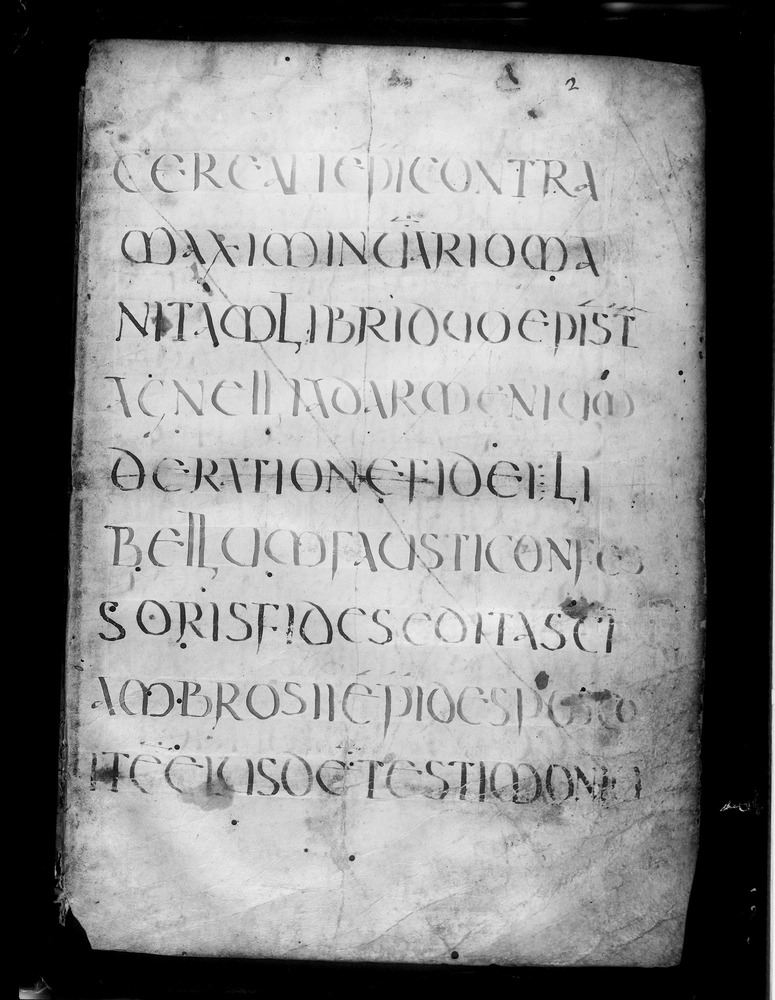 2
CEREALIEP̄ICONTRA
MAXIMINUARIOMA
NITAMLIBRIDUOEPIST
AGNELLIADARMENIUM
DERATIONEFIDEILI
BELLUMFAUSTICONFES
SORISFIDESEDITASC̄I
AMBROSIIEP̄IDESP̄USCO
ITEEIUSDETESTIMONIA